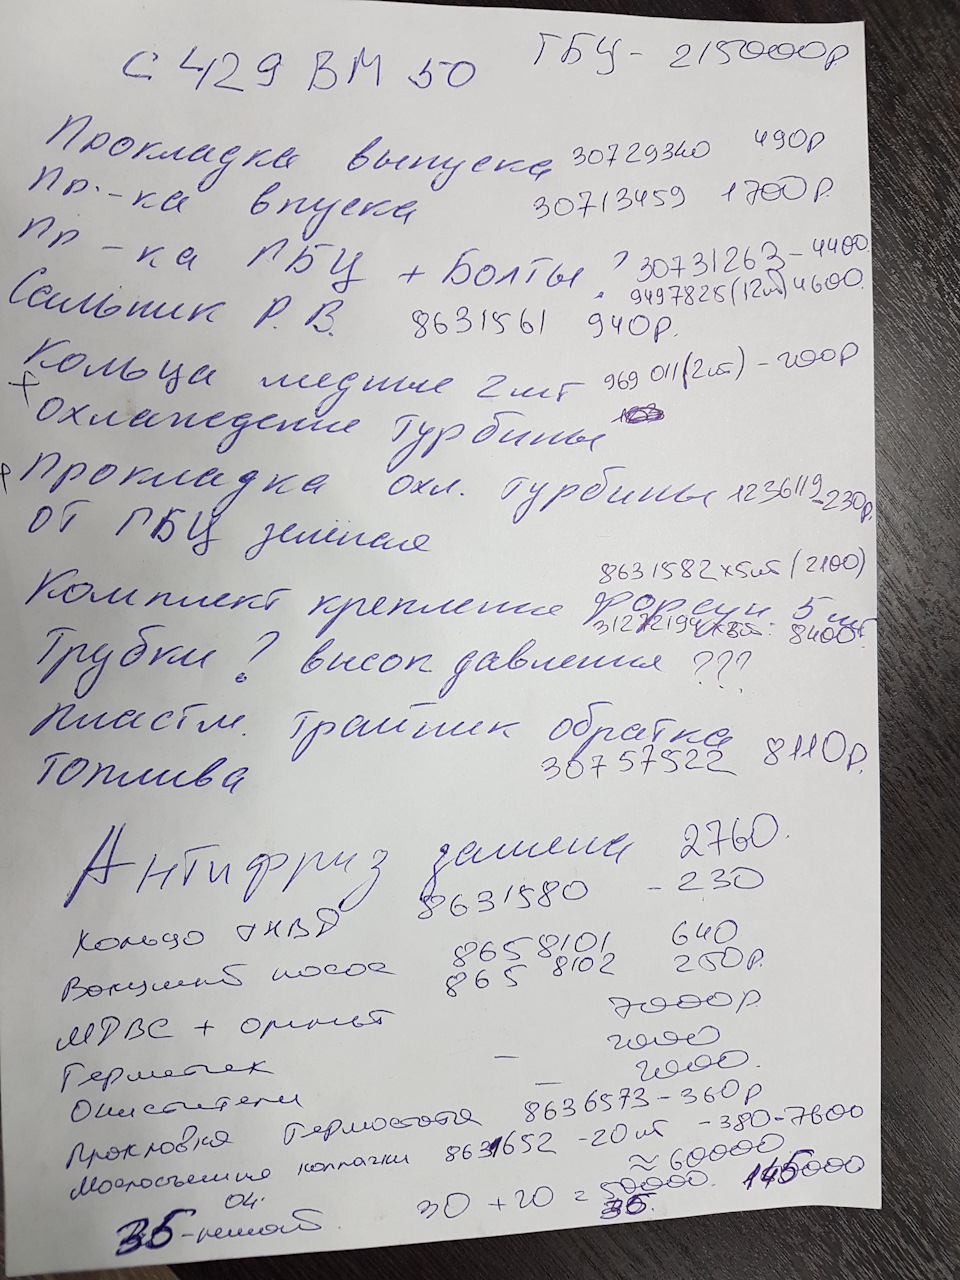 С 429 ВМ 50 ГБЦ - 215000р
Прокладка выпуска 30729340 490р
Пр.-ка впуска 30713459 1700р.
Пр-ка ГБЦ + Болты ? 30731263 - 4400
9497825 (12шт) 4600.
Сальник Р.В. 8631561 940р.
Кольца медные 2шт 969011 (2шт) - 200р
+ охлаждение турбины
+ Прокладка охл. турбины 1236119 - 230р.
от ГБЦ зеленая
8631582 x 5шт (2100)
Комплект крепления форсун 5шт
8400
Трубки ? высок давления ???
Пластм. тройник обратка
топлива 30757522 8110р.
Антифриз замена 2760.
Кольцо ТНВД 8631580 - 230
Вакумный насос 8658101 640
8658102 250р.
МДВС + 7000р
Герметик - 2000
Очистители - 2000.
Прокладка Термостата 8636573 - 360р
Маслосъемные колпачки 8631652 - 20шт - 380 - 7600
≈ 60000
30 + 20 = 50000. 145000
35.
04.
35 -